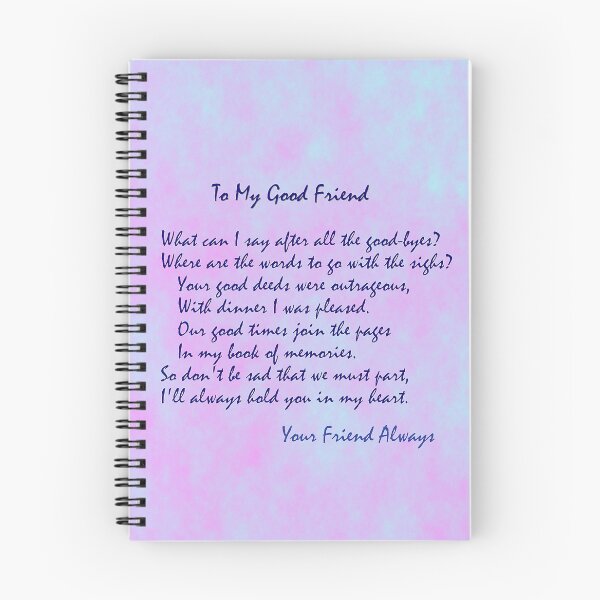 To My Good Friend
What can I say after all the good-byes?
Where are the words to go with the sighs?
Your good deeds were outrageous,
With dinner I was pleased.
Our good times join the pages
In my book of memories.
So don't be sad that we must part,
I'll always hold you in my heart.
Your Friend Always